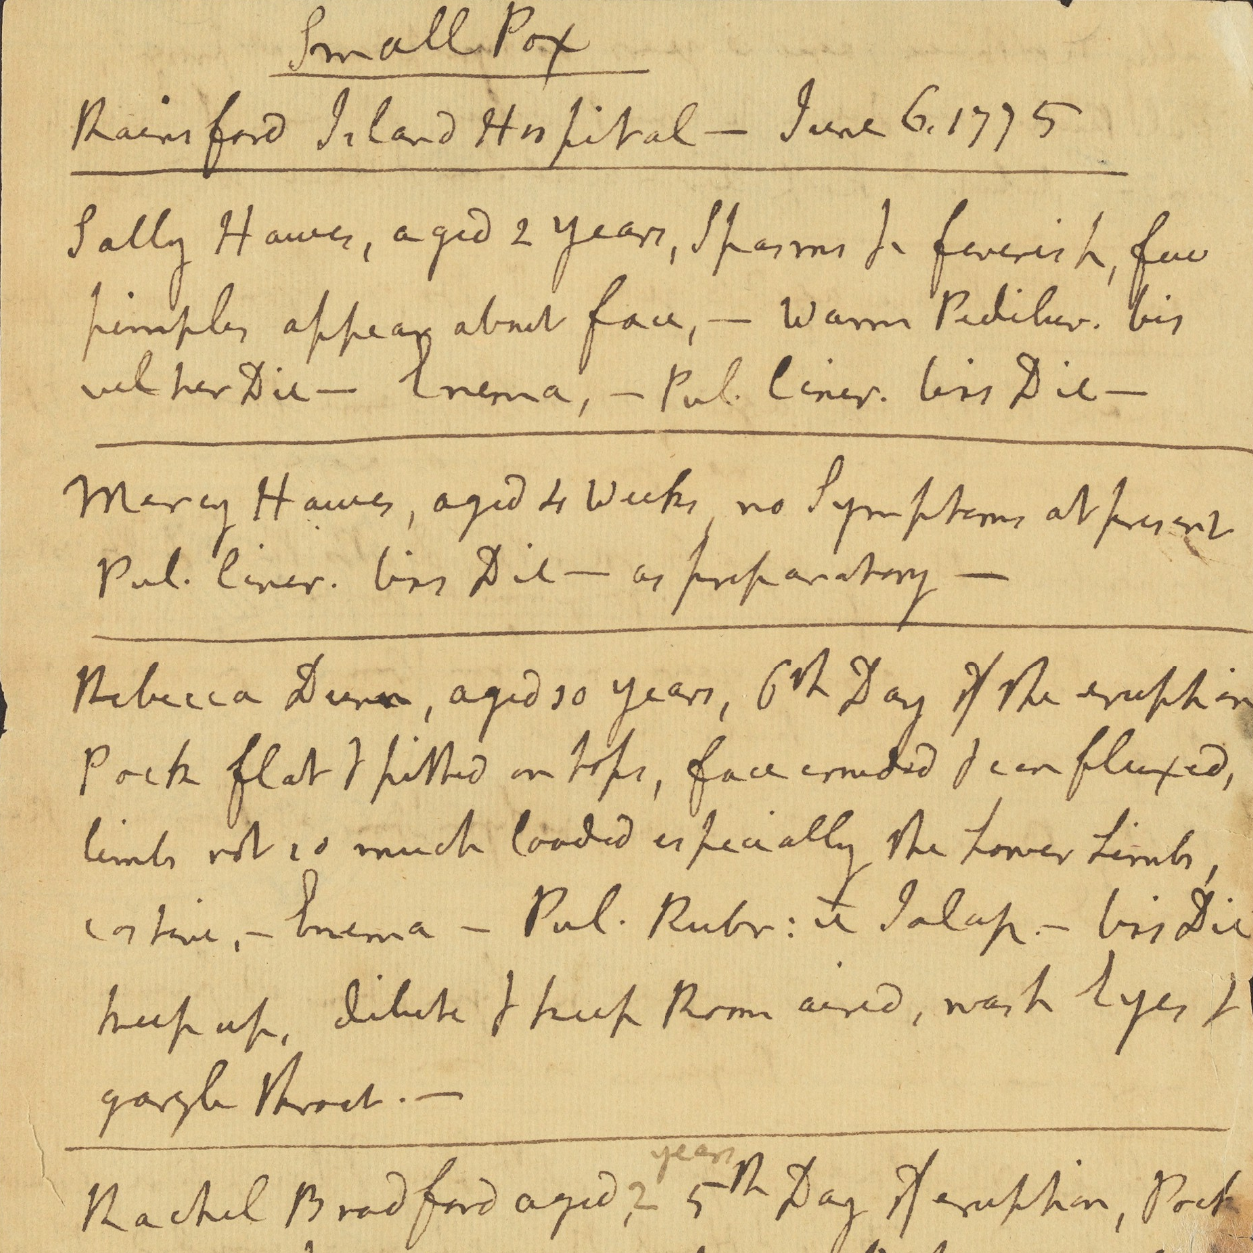 Small Pox
Rainsford Island Hospital — June 6. 1775
Sally Hawes, aged 2 years, Spasms & feverish, few
pimples appear about face, — Warm Pediluv. bis
vel ter Die — Enema, — Pul. Ciner. bis Die —
Mercy Hawes, aged 4 Weeks, no Symptoms at present
Pul. Ciner. bis Die — as preparatory —
Rebecca Dunn, aged 10 years, 6th Day of the eruption
Pock flat & pitted on tops, face crowded & confluxed,
limbs not so much loaded especially the Lower Limbs,
costive, — Enema — Pul. Rubr: è Jalap. — bis Die
keep up, dilute & keep Room aired, wash Eyes &
gargle throat. —
years
Rachel Bradford aged, 2 5th Day of eruption, Pock